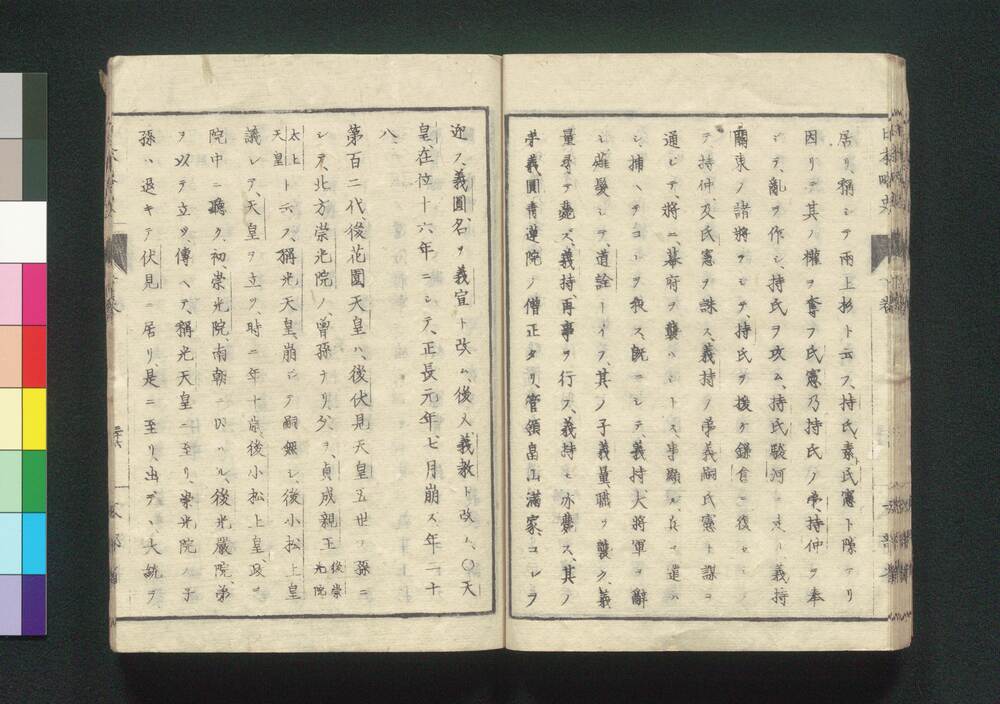 居リ、稱シテ兩上杉ト云フ、持氏、素氏憲ト隙アリ
因リテ其ノ權ヲ奪フ氏憲乃持氏ノ弟、持仲ヲ奉
シテ、亂ヲ作シ、持氏ヲ攻ム、持氏駿河ニ走ル、義持
關東ノ諸將ヲシテ、持氏ヲ援ケ鎌倉ニ復セシ
テ持仲、及氏憲ヲ誅ス、義持ノ弟義嗣氏憲ト謀ヲ
通シテ、將ニ、幕府ヲ襲ハントス、事顯
シ、捕ヘテコレヲ殺ス、既ニシテ、義持大將軍ヲ辭
シ、薙髮シテ、道詮トイフ、其ノ子義量、職ヲ襲ク、義
量尋テ薨ス、義持、再事ヲ行フ、義持モ亦薨ス、其ノ
弟義圓青蓮院ノ僧正タリ、管領畠山滿家、コレヲ
迎フ、義圓、名ヲ義宣ト改ム、後又義教ト改ム、〇天
皇、在位十六年ニシテ、正長元年七月崩ス、年二十
八、
第百二代、後花園天皇ハ、後伏見天皇五世ノ孫ニ
シテ、北方崇光院ノ、曾孫ナリ、父ヲ、貞成親王 後崇光院
太上天皇 ト云フ、稱光天皇、崩シテ嗣無シ、後小松上皇
議シテ、天皇ヲ立ツ、時ニ年十歳、後小松上皇、政ヲ
院中ニ聽ク、初、崇光院、南朝ニ囚ハル、後光嚴院、弟
ヲ以テ立ツ、傳ヘテ、稱光天皇ニ至リ、崇光院ノ子
孫ハ退キテ伏見ニ居リ、是ニ至リ、出デヽ、大統ヲ